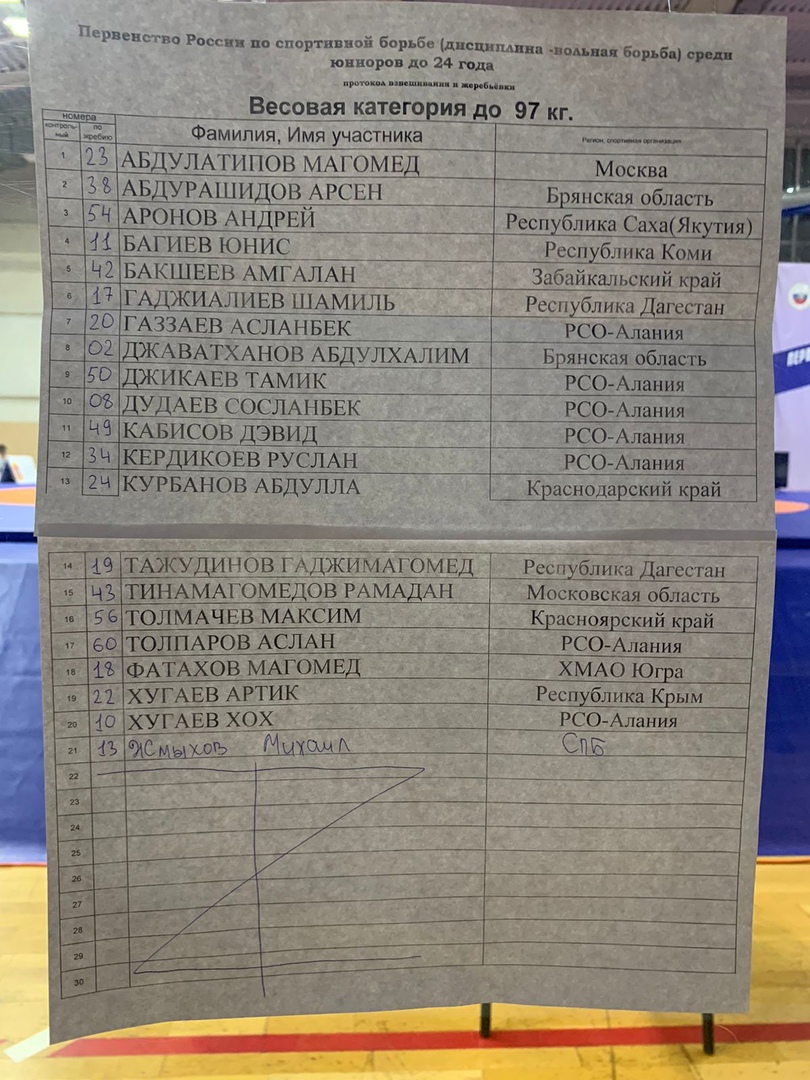 Первенство России по спортивной борьбе (дисциплина -вольная борьба) среди
юниоров до 24 года
протокол взвешивания и жеребьёвки
Весовая категория до 97 кг.
номера
контроль-ный по жребию Фамилия, Имя участника Регион, спортивная организация
1 23 АБДУЛАТИПОВ МАГОМЕД Москва
2 38 АБДУРАШИДОВ АРСЕН Брянская область
3 54 АРОНОВ АНДРЕЙ Республика Саха(Якутия)
4 11 БАГИЕВ ЮНИС Республика Коми
5 42 БАКШЕЕВ АМГАЛАН Забайкальский край
6 17 ГАДЖИАЛИЕВ ШАМИЛЬ Республика Дагестан
7 20 ГАЗЗАЕВ АСЛАНБЕК РСО-Алания
8 02 ДЖАВАТХАНОВ АБДУЛХАЛИМ Брянская область
9 50 ДЖИКАЕВ ТАМИК РСО-Алания
10 08 ДУДАЕВ СОСЛАНБЕК РСО-Алания
11 49 КАБИСОВ ДЭВИД РСО-Алания
12 34 КЕРДИКОЕВ РУСЛАН РСО-Алания
13 24 КУРБАНОВ АБДУЛЛА Краснодарский край
14 19 ТАЖУДИНОВ ГАДЖИМАГОМЕД Республика Дагестан
15 43 ТИНАМАГОМЕДОВ РАМАДАН Московская область
16 56 ТОЛМАЧЕВ МАКСИМ Красноярский край
17 60 ТОЛПАРОВ АСЛАН РСО-Алания
18 18 ФАТАХОВ МАГОМЕД ХМАО Югра
19 22 ХУГАЕВ АРТИК Республика Крым
20 10 ХУГАЕВ ХОХ РСО-Алания
21 13 Жмыхов Михаил СПБ
22
23
24
25
26
27
28
29
30